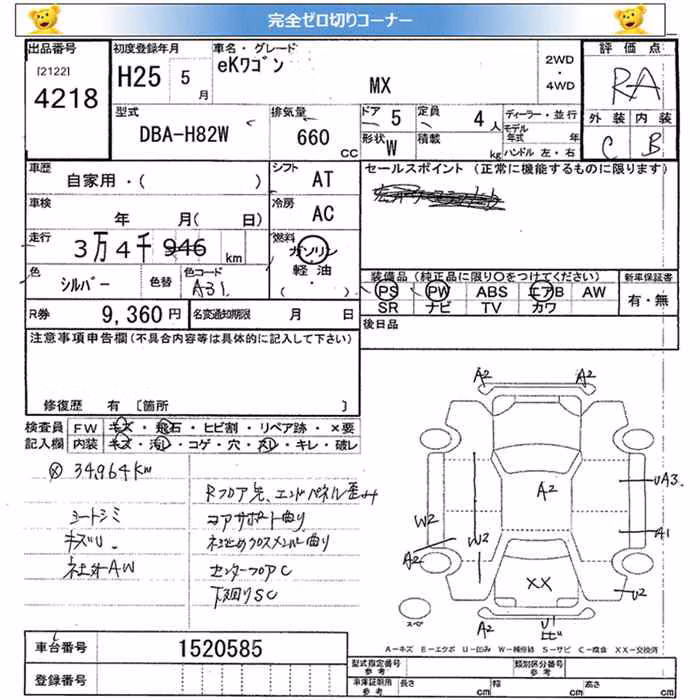 完全ゼロ切りコーナー
出品番号 初度登録年月 車名・グレード 評価点
[2122] 4218 H25 5月 eKワゴン MX 2WD・4WD RA
型式 排気量 ドア 5 定員 4人 ディーラー・並行 外装 内装
DBA-H82W 660cc 形状 W 積載 kg モデル年式 年 ハンドル 左・右 C B
車歴 シフト セールスポイント (正常に機能するものに限ります)
自家用・( ) AT
車検 冷房
年 月( 日) AC
走行 燃料
3万4千946km ガソリン
軽油
・( )
色 シルバー 色替 色コード A31
装備品(純正品に限り○をつけてください) 新車保証書
PS PW ABS エアB AW 有・無
SR ナビ TV カワ
R券 9,360円 名変通知期限 月 日
後日品
注意事項申告欄(不具合内容等は具体的に記入して下さい)
修復歴 有 [箇所 ]
検査員 FW キズ・飛石・ヒビ割・リペア跡・×要
記入欄 内装 キズ・汚し・コゲ・穴・スレ・キレ・破レ
34,964km
シートシミ
キズU.
社外AW
Rフロア先、エンドパネル歪み
コアサポート曲り
ネジ止めクロスメンバー曲り
センターフロアC
下廻りSC
A2 A2
A2 UA3.
W2 W2 A1
A2
XX U2
スペア A2 U1
A−キズ E−エクボ U−凹み W−補修跡 S−サビ C−腐食 XX−交換済
車台番号 1520585
登録番号
型式指定番号 参考 類別区分番号 参考
車庫証明用 参考 長さ cm 幅 cm 高さ cm